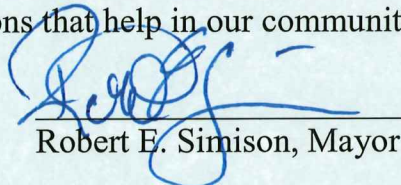 ons that help in our communit
Robert E. Simison, Mayor